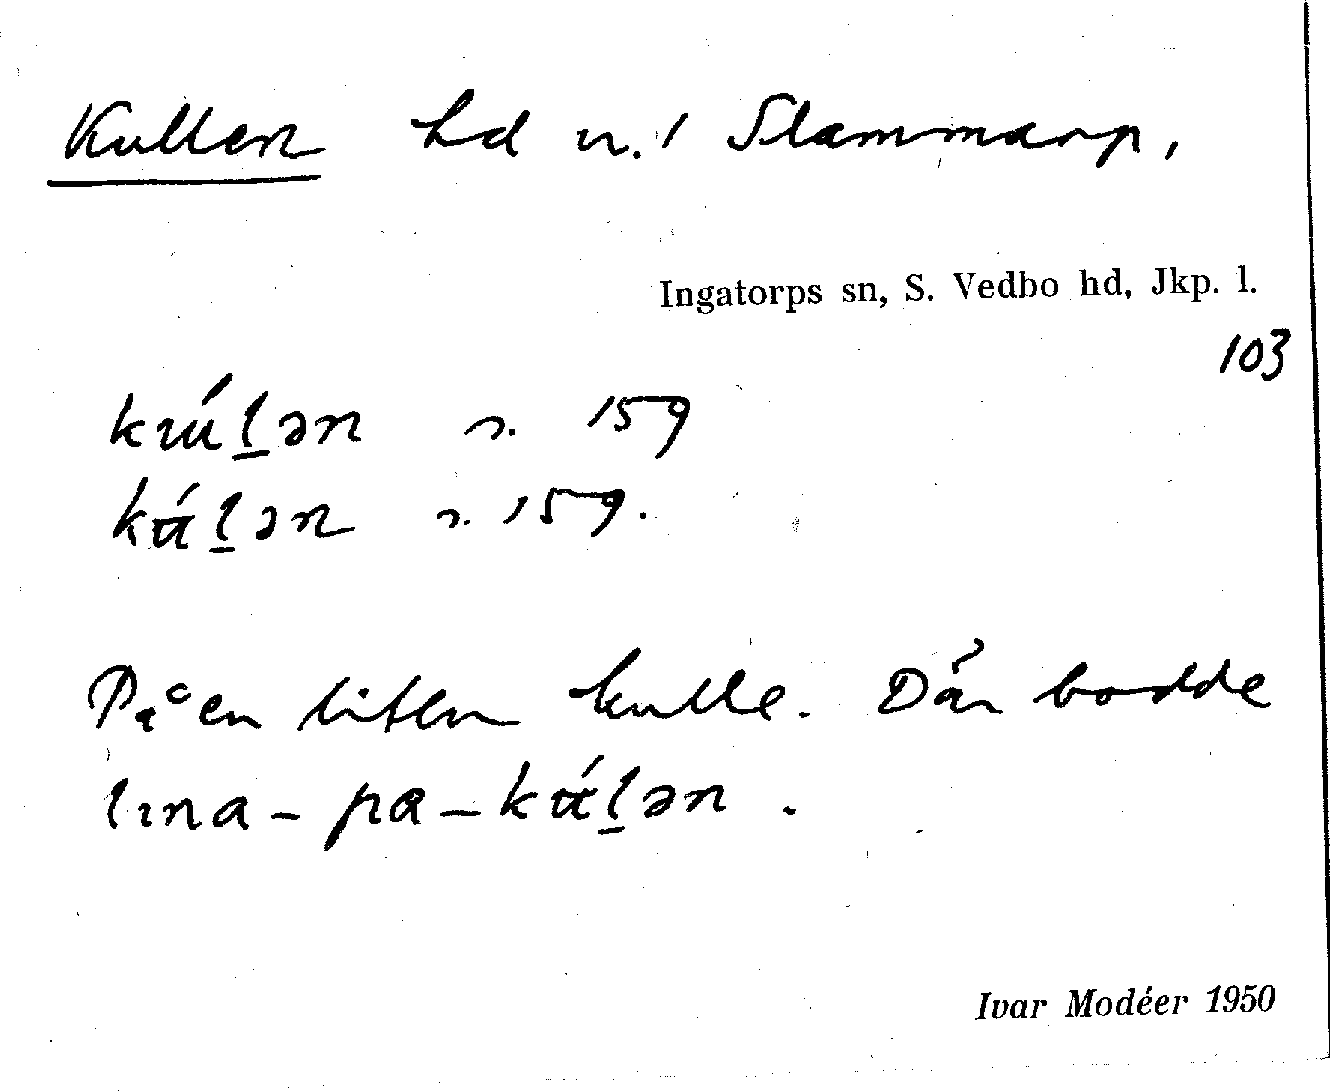 Kullen hd u. / Slammarp,
Ingatorps sn, S. Vedbo hd, Jkp. l.
103
kɯ́l̲ən s. 159
kʉ́l̲ən s. 159.
På en liten kulle. Där bodde
lɪna - pa - kʉ́l̲ən .
Ivar Modéer 1950